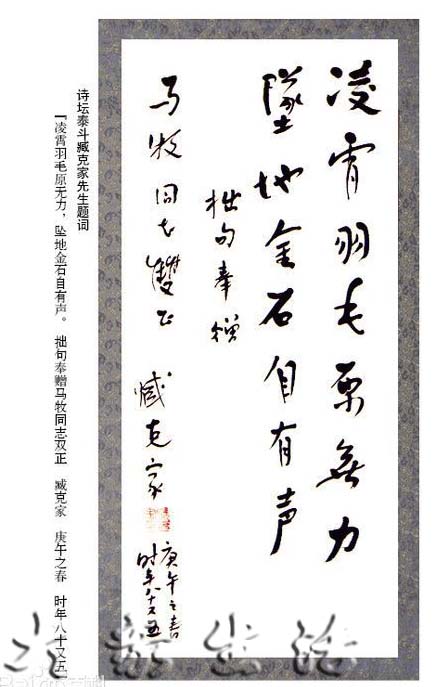 凌霄羽毛原無力
墜地金石自有声
拙句奉赠
马牧同志雙正
臧克家
庚午之春
时年八十又五
诗坛泰斗臧克家先生题词
『凌霄羽毛原无力，坠地金石自有声。 拙句奉赠马牧同志双正 臧克家 庚午之春 时年八十又五